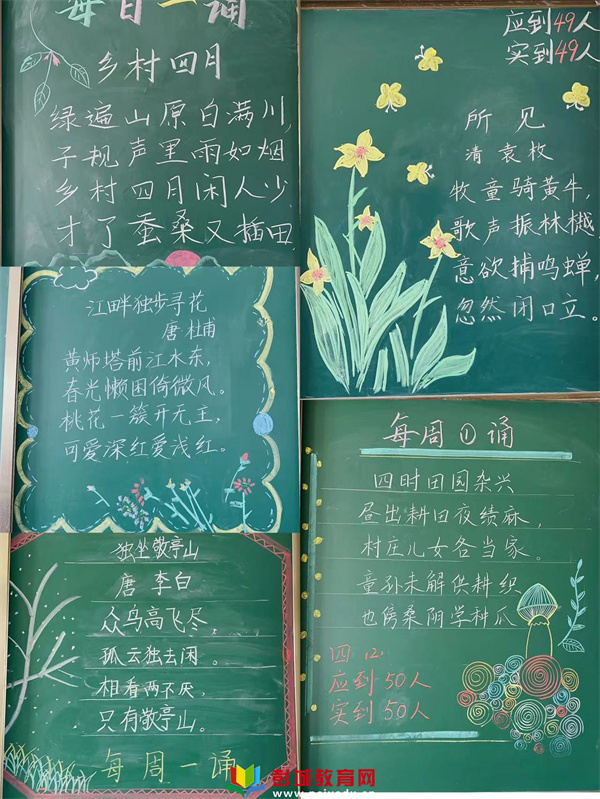 每日一诵
乡村四月
绿遍山原白满川,
子规声里雨如烟
乡村四月闲人少,
才了蚕桑又插田
应到49人
实到49人
所见
清 袁枚
牧童骑黄牛,
歌声振林樾,
意欲捕鸣蝉,
忽然闭口立。
江畔独步寻花
唐 杜甫
黄师塔前江水东,
春光懒困倚微风。
桃花一簇开无主,
可爱深红爱浅红。
每周①诵
四时田园杂兴
昼出耕田夜绩麻,
村庄儿女各当家。
童孙未解供耕织
也傍桑阴学种瓜
四(2)
应到50人
实到50人
独坐敬亭山
唐 李白
众鸟高飞尽,
孤云独去闲。
相看两不厌,
只有敬亭山。
每周一诵
教育网